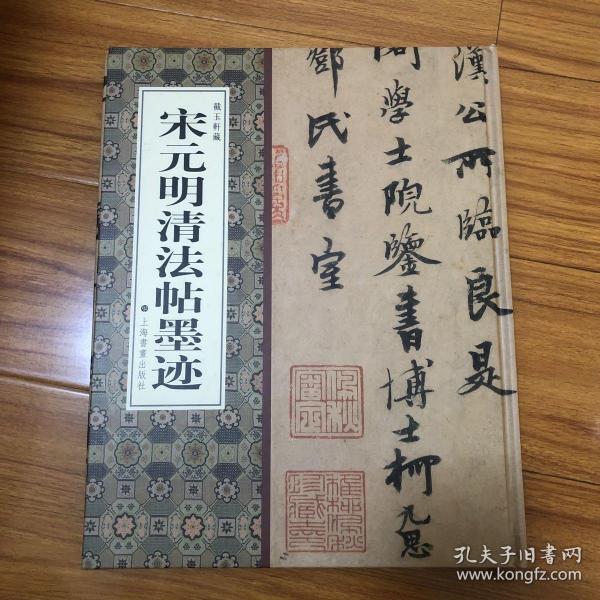 戴玉軒藏
宋元明清法帖墨迹
上海書畫出版社
漢公所臨良是
閣學士院鑒書博士柯九思
鄧氏書室
孔夫子旧书网
www.kongfz.com